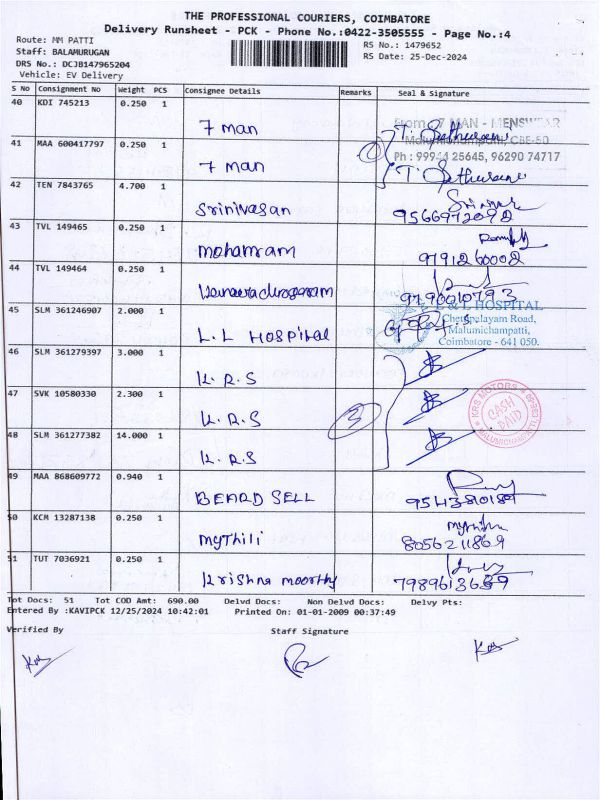 THE PROFESSIONAL COURIERS, COIMBATORE
Delivery Runsheet - PCK - Phone No.:0422-3505555 - Page No.:4
Route: MM PATTI
RS No.: 1479652
Staff: BALAMURUGAN
RS Date: 25-Dec-2024
DRS No.: DCJB147965204
Vehicle: EV Delivery
S No Consignment No Weight PCS Consignee Details Remarks Seal & Signature
40 KDI 745213 0.250 1 7 man
From 7 MAN - MENSWEAR
Malumichampatti, CBE-50
Ph : 99944 25645, 96290 74717
41 MAA 600417797 0.250 1 7 man
42 TEN 7843765 4.700 1 Srinivasan
43 TVL 149465 0.250 1 mohamram 9791260002
44 TVL 149464 0.250 1 9790010793
45 SLM 361246907 2.000 1 L.L HOSPital
L & L HOSPITAL
Chettipalayam Road,
Malumichampatti,
Coimbatore - 641 050.
46 SLM 361279397 3.000 1 K.R.S
47 SVK 10580330 2.300 1 K.R.S 3
KRS MOTORS
CASH PAID
48 SLM 361277382 14.000 1 K.R.S
49 MAA 868609772 0.940 1 BEARD SELL
50 KCM 13287138 0.250 1 Mythili 8056211869
51 TUT 7036921 0.250 1 Krishna moorthy
Tot Docs: 51 Tot COD Amt: 690.00 Delvd Docs: Non Delvd Docs: Delvy Pts:
Entered By :KAVIPCK 12/25/2024 10:42:01 Printed On: 01-01-2009 00:37:49
Verified By Staff Signature